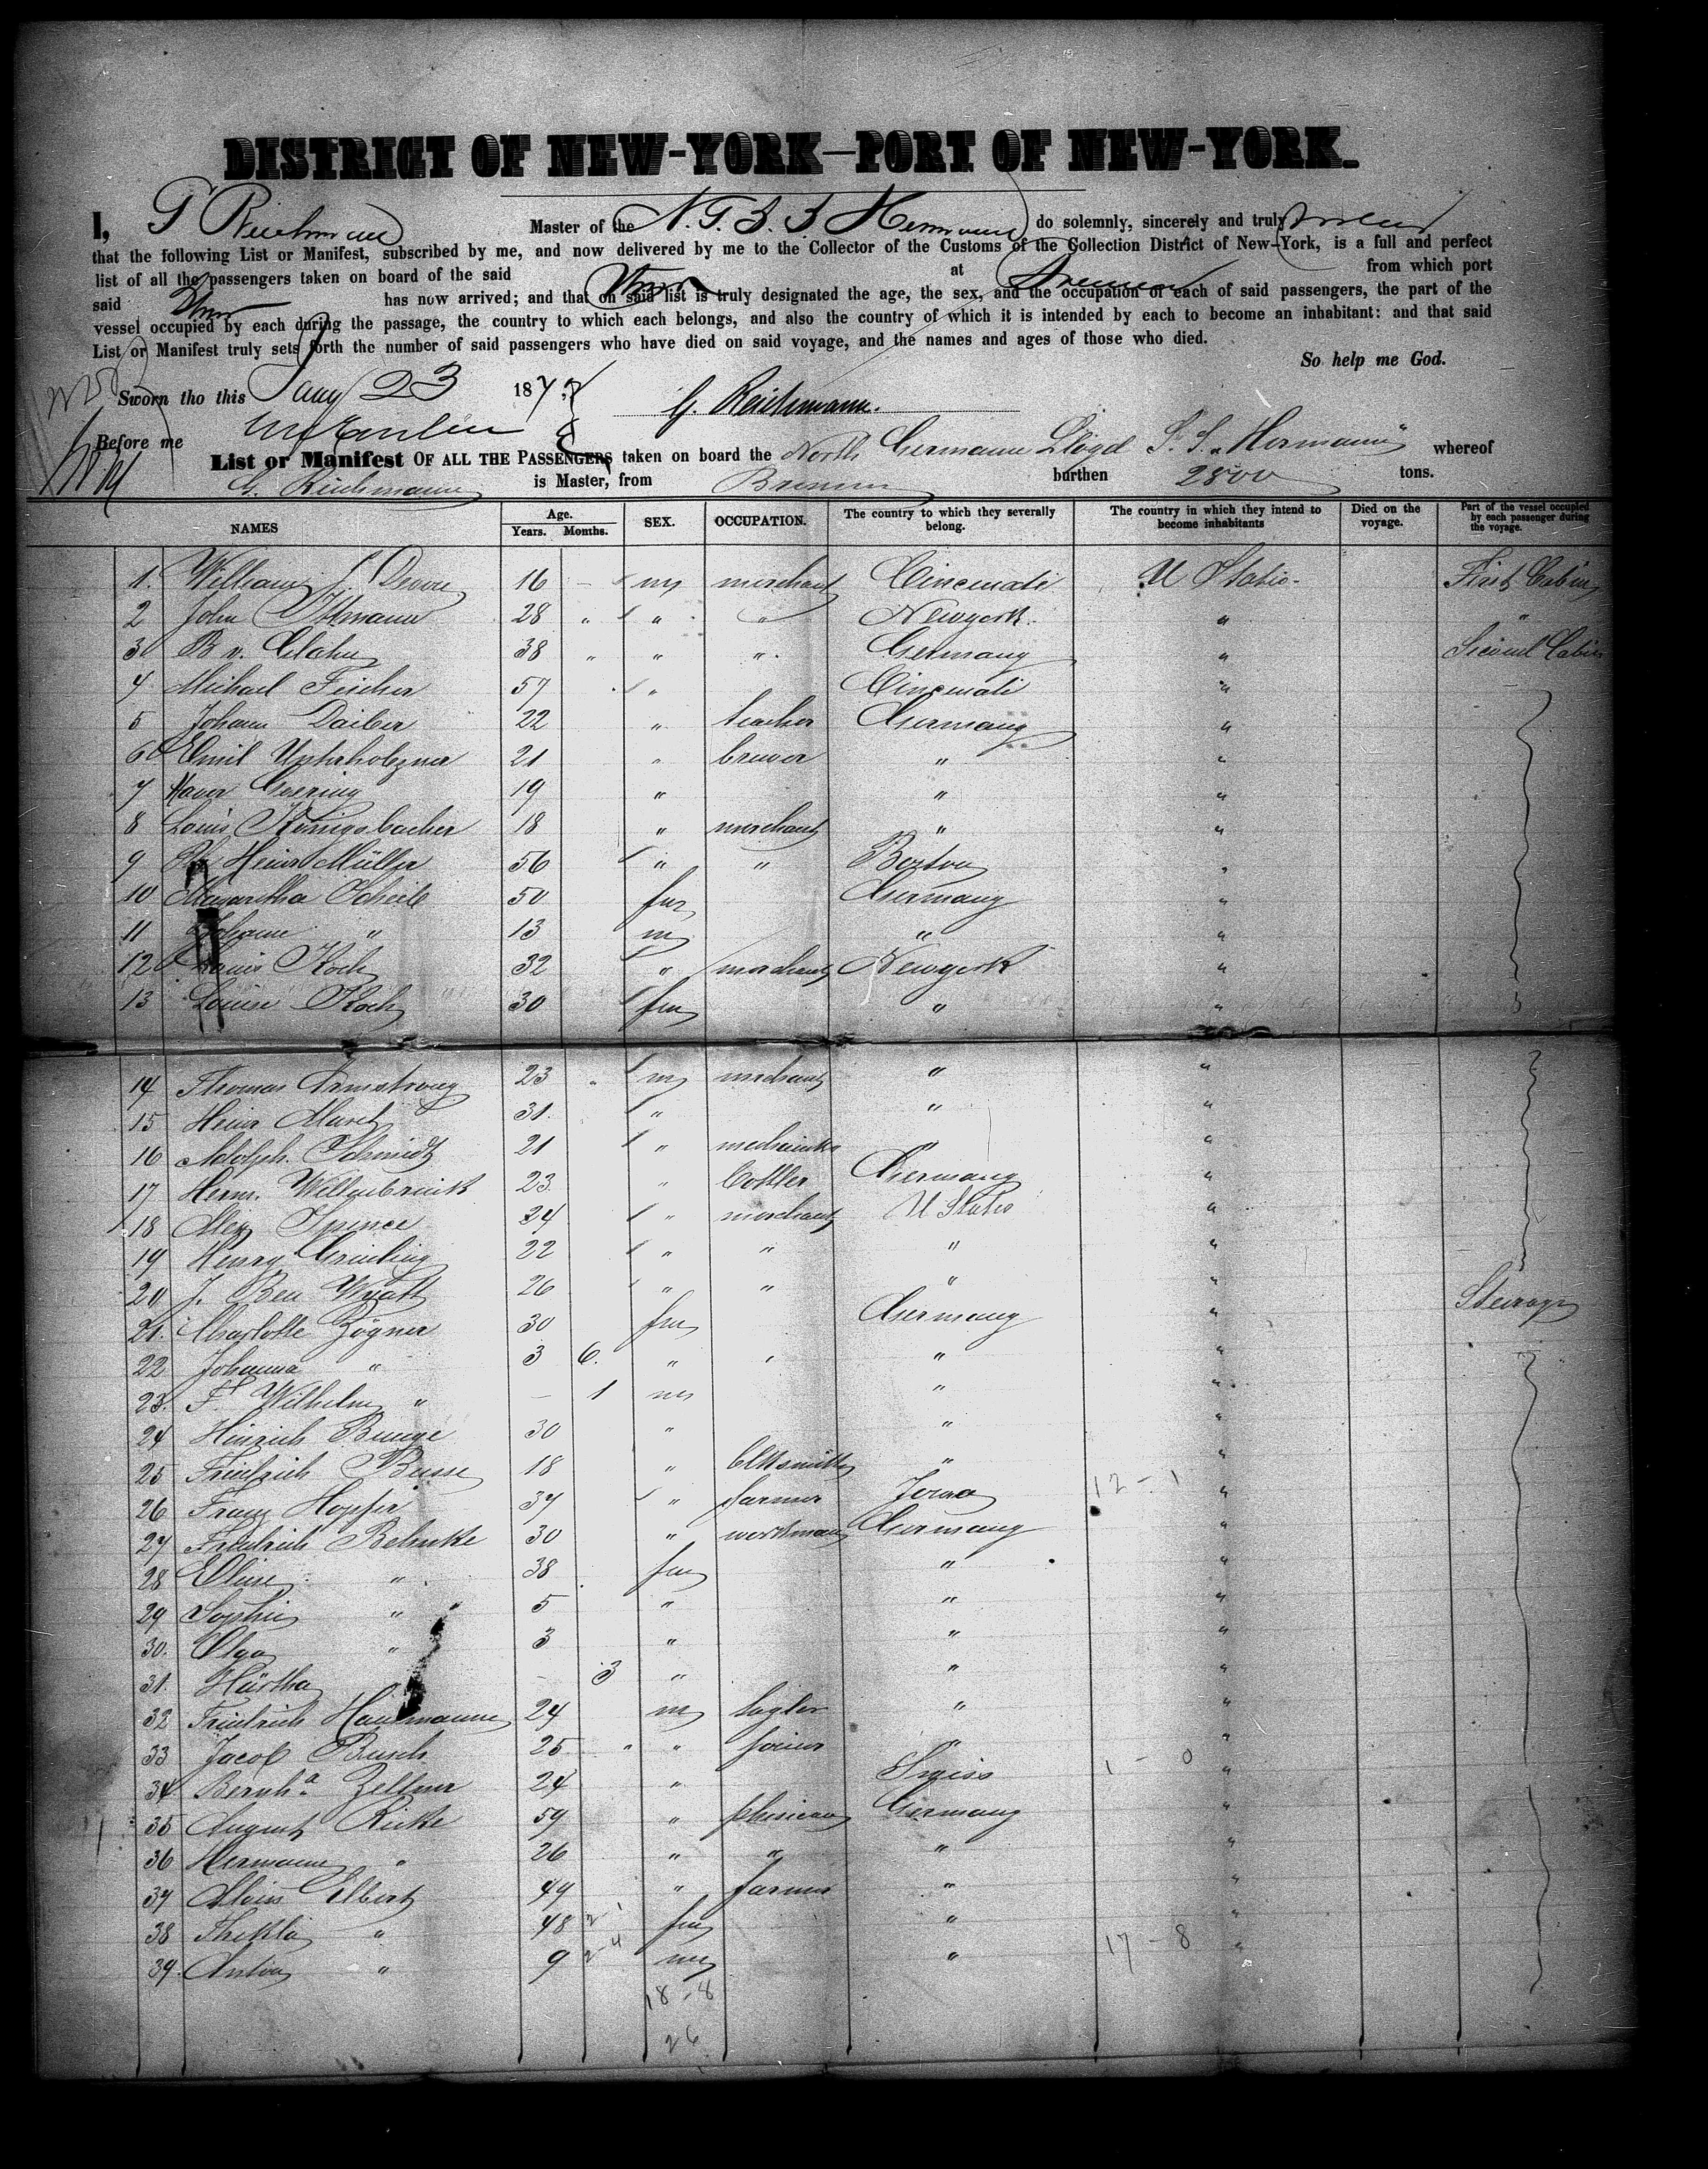 DISTRICT OF NEW-YORK—PORT OF NEW-YORK.
I, G Reichmann Master of the N. G. S. S Hermann do solemnly, sincerely and truly swear
that the following List or Manifest, subscribed by me, and now delivered by me to the Collector of the Customs of the Collection District of New-York, is a full and perfect
list of all the passengers taken on board of the said Strm at Bremen from which port
said Strm has now arrived; and that on said list is truly designated the age, the sex, and the occupation of each of said passengers, the part of the
vessel occupied by each during the passage, the country to which each belongs, and also the country of which it is intended by each to become an inhabitant: and that said
List or Manifest truly sets forth the number of said passengers who have died on said voyage, and the names and ages of those who died.
So help me God.
Sworn tho this Jany 23 187 G. Reichmann.
Before me
List or Manifest OF ALL THE PASSENGERS taken on board the North Germann Lloyd S. S. "Hermann" whereof
G. Reichmann is Master, from Bremen burthen 2800 tons.
NAMES Age. Years. Months. SEX. OCCUPATION. The country to which they severally belong. The country in which they intend to become inhabitants Died on the voyage. Part of the vessel occupied by each passenger during the voyage.
1. William 16 – m merchant Cincinati U States First Cabin
2 John Ittmann 28 " " " Newyork " "
3 B v. Glahn 38 " " " Germany " Second Cabin
4 Michael Fischer 57 " Cincinati "
5 Johann Daiber 22 " teacher Germany "
6 Emil 21 " brewer " "
7 Goering 19 " " "
8 Louis Königsbacher 18 " merchant " "
9 Heinr Müller 56 " " Boston "
10 Margaretha Scheib 50 fm Germany "
11 Johann " 13 m " "
12 Louis Koch 32 " merchant Newyork "
13 Louise Koch 30 fm " "
14 Thomas Armstrong 23 " m merchant " "
15 Heinr 31. " " "
16 Adolph. Schmidt 21 " mechanik " "
17 Herm. Willenbrink 23. " Germany "
18 Alex Spence 24 " merchant U States "
19 Henry 22 " " " "
20 J. Ben Wyatt 26 " " " "
21. Charlotte Zögner 30 fm Germany " Steirage
22 Johanna " 3 6. " " "
23. F. Wilhelm " – 1 m " "
24 Hinrich Bunge 30 " " "
25 Friedrich Busse 18 " blksmith " "
26 Franz Hopfer 37 " farmer Jowa 12 – 1 "
27 Friedrich Behnke 30 " workman Germany "
28 Elise " 38 fm " "
29 Sophie " 5 " " "
30. Olga " 3 " " "
31. Hürtha – 3 " " "
32 Friedrich 24 m " "
33 Jacob Busch 25 " " joiner " "
34 Bernh.ª Zellmer 24 " Swiss 1 – 0 "
35 August Ricke 59 " phisician Germany "
36 Hermann " 26 " " " "
37 Alois Elbert 49 " farmer " "
38 Thekla " 48 2 1 fm " "
39. Anton " 9 2 4 m " 17 – 8 "
18 – 8
26